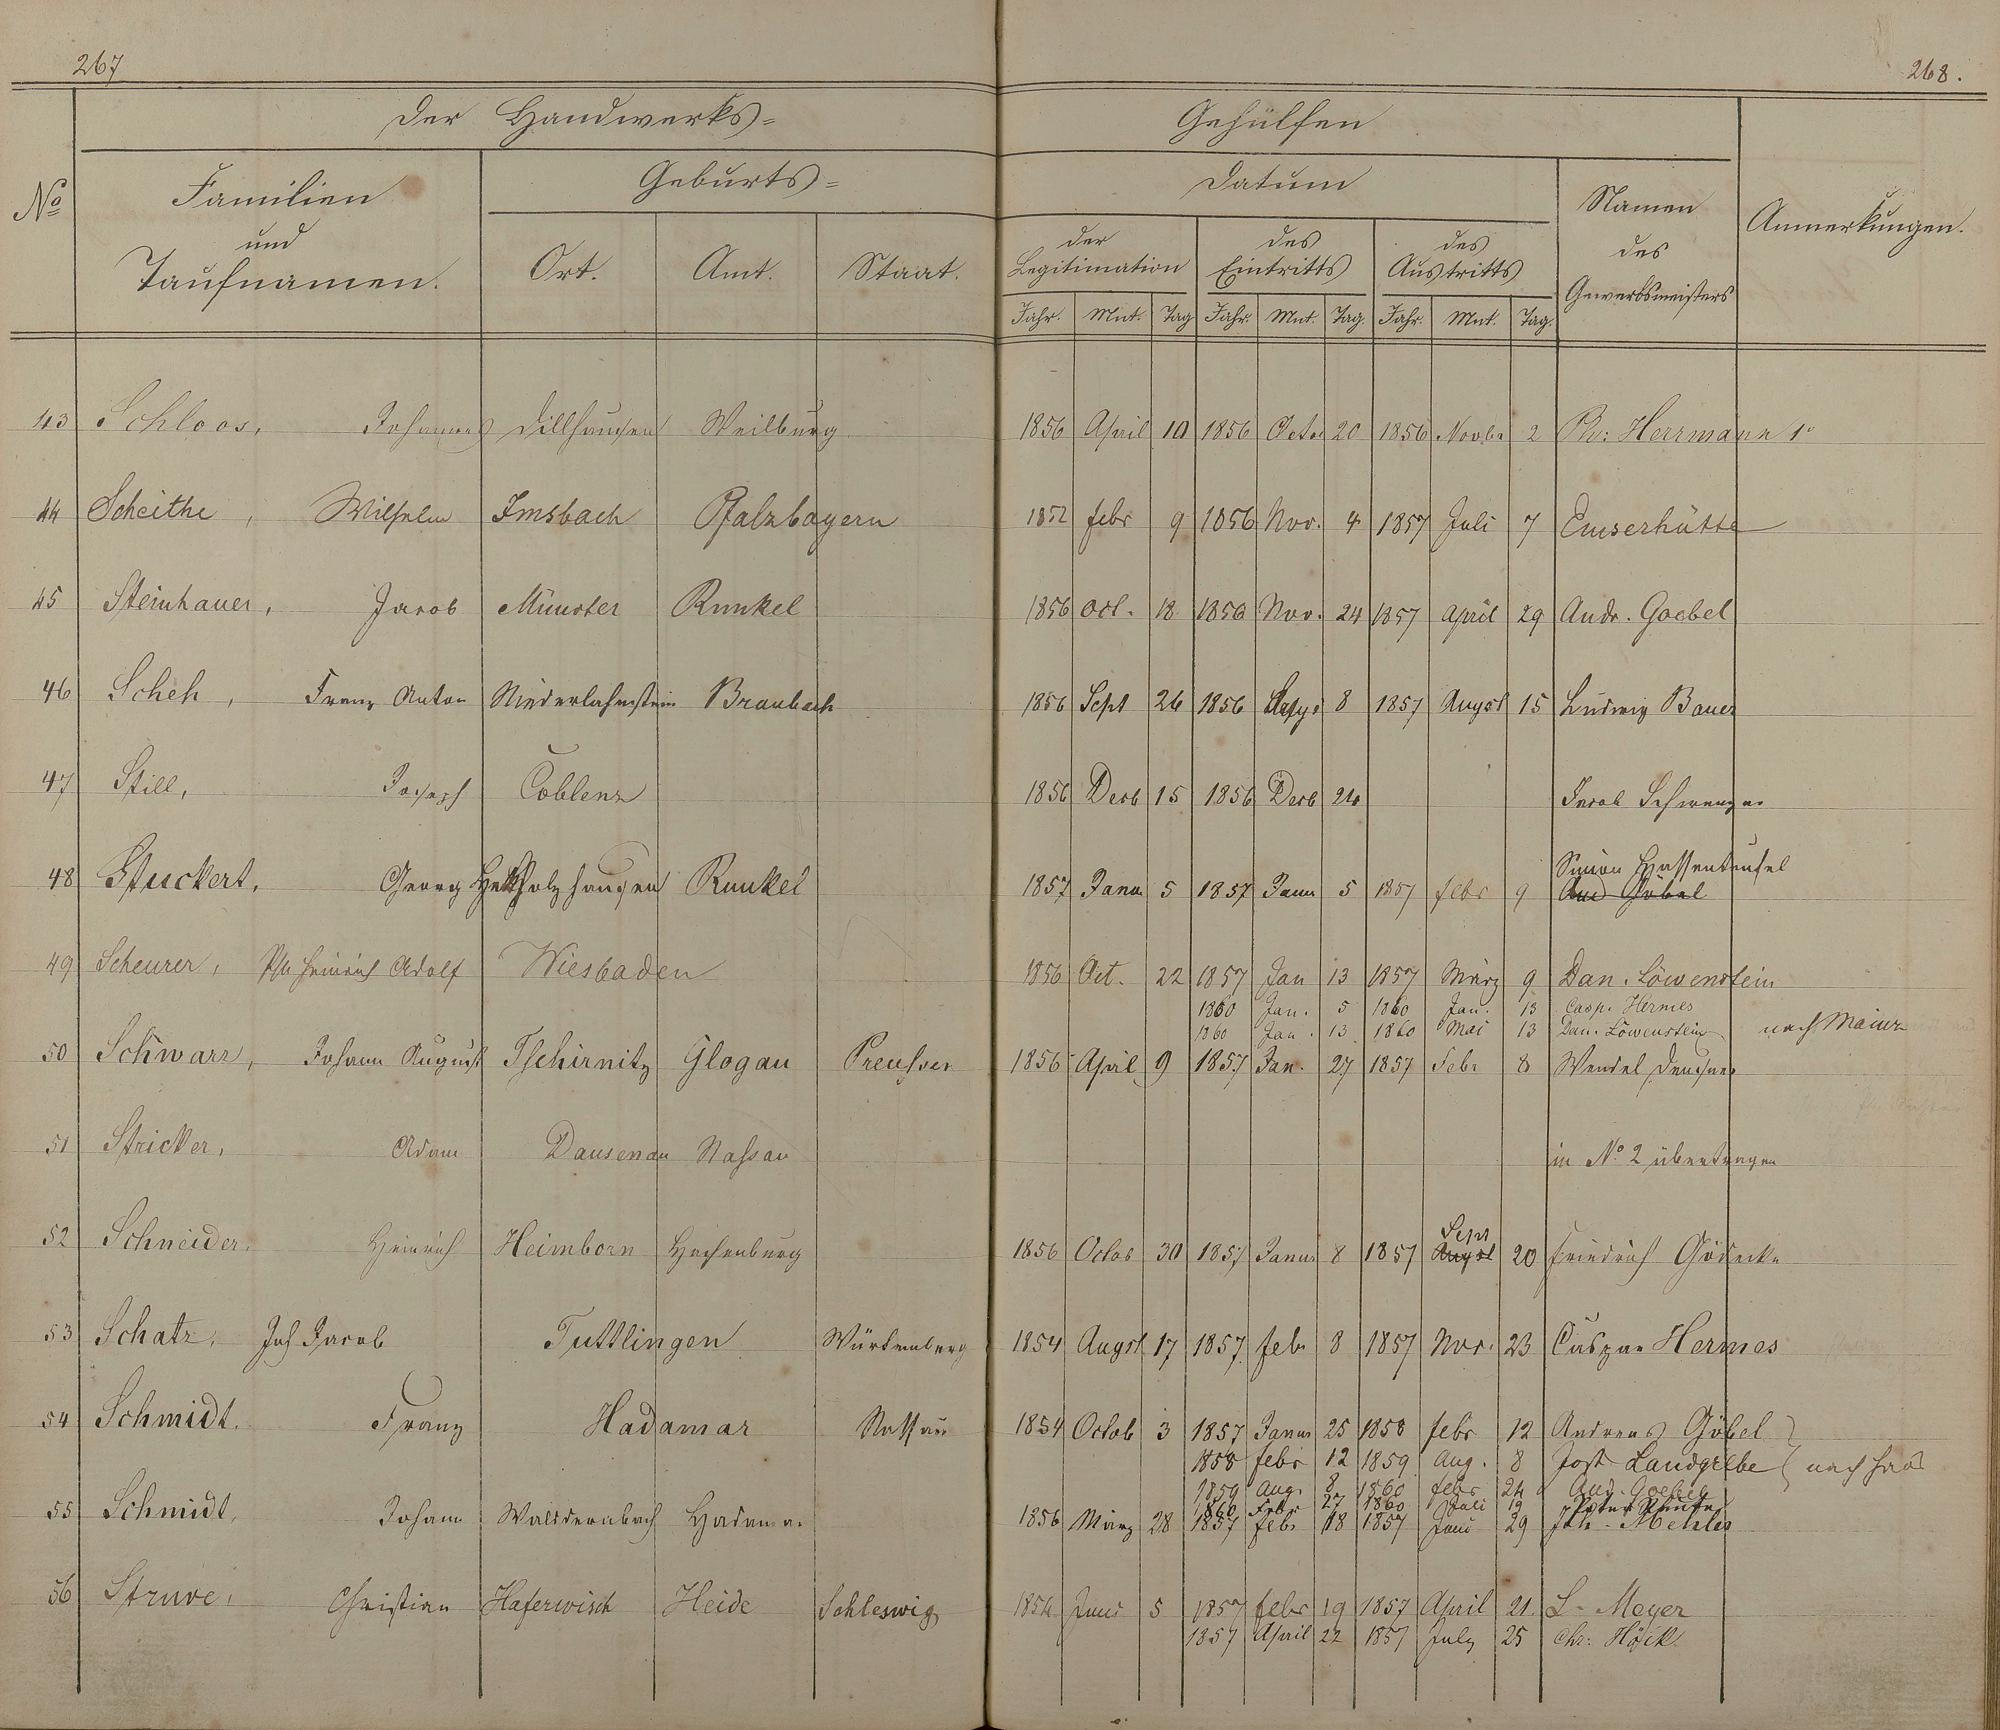 267
268.
Der Handwerks=
Gehülfen
No
Familien
und
Taufnamen.
Geburts=
Ort. Amt. Staat.
Datum
der
Legitimation
des
Eintritts
des
Austritts
Jahr. Mnt. Tag Jahr. Mnt. Tag. Jahr. Mnt. Tag.
Namen
des
Gewerbsmeisters
Anmerkungen.
43 Schloos, Johannes Dillhausen Weilburg 1856 April 10 1856 Octo 20 1856 Novbr 2 Ph: Herrmann 1r
44 Scheithe, Wilhelm Imsbach Pfalzbayern 1852 febr 9 1856 Nov. 4 1857 Juli 7 Emserhütte
45 Steinhauer, Jacob Münster Runkel 1856 Oct. 18 1856 Nov. 24 1857 April 29 Andr. Goebel
46 Scheh, Franz Anton Niederlahnstein Braubach 1856 Sept 26 1856 8 1857 Augst 15 Ludwig Bauer
47 Still, Joseph Coblenz 1856 Decb 15 1856 Decb 24 Jacob
48 Stuckert, Georg Heckholzhausen Runkel 1857 Janu 5 1857 Janu 5 1857 febr 9 Simon Hassenteufel
And Göbel
49 Scheurer, Ph. Heinrich Adolf Wiesbaden 1856 Oct. 22 1857 Jan 13 1857 März 9 Dan. Löwenstein
1860 Jan. 5 1860 Jan. 13 Casp. Hermes
1860 Jan. 13 1860 Mai 13 Dan. Löwenstein nach Mainz
50 Schwarz, Johann August Tschirnitz Glogau Preussen 1856 April 9 1857 Jan. 27 1857 Febr 8 Wendel
51 Stricker, Adam Dausenau Nassau in No 2 übertragen
52 Schneider, Heinrich Heimborn Hachenburg 1856 Octob 30 1857 Janu 8 1857 Augst Sept 20 Friedrich Gödecke
53 Schatz, Joh Jacob Tuttlingen Würtemberg 1854 Augst 17 1857 febr 8 1857 Nov. 23 Caspar Hermes
54 Schmidt. Franz Hadamar Nassau 1854 Octob 3 1857 Janu 25 1858 febr 12 Andreas Göbel
1858 febr 12 1859 Aug. 8 Jost Landgrebe nach Haus
1859 Aug. 8 1860 febr 24 And. Goebel
1860 Febr 27 1860 Juli 19 Peter
55 Schmidt, Johann Walddernbach Hadamar 1856 März 28 1857 feb. 18 1857 Juni 29 Joh. Mehler
56 Struve, Christian Haferwisch Heide Schleswig 1854 Juni 5 1857 febr 19 1857 April 21. L. Meyer
1857 April 22 1857 July 25 Chr: Höfik